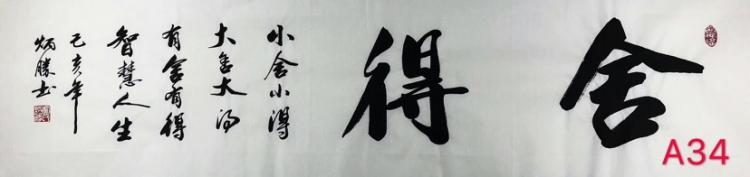 舍得
小舍小得
大舍大得
有舍有得
智慧人生
己亥年
炳胜书
A34